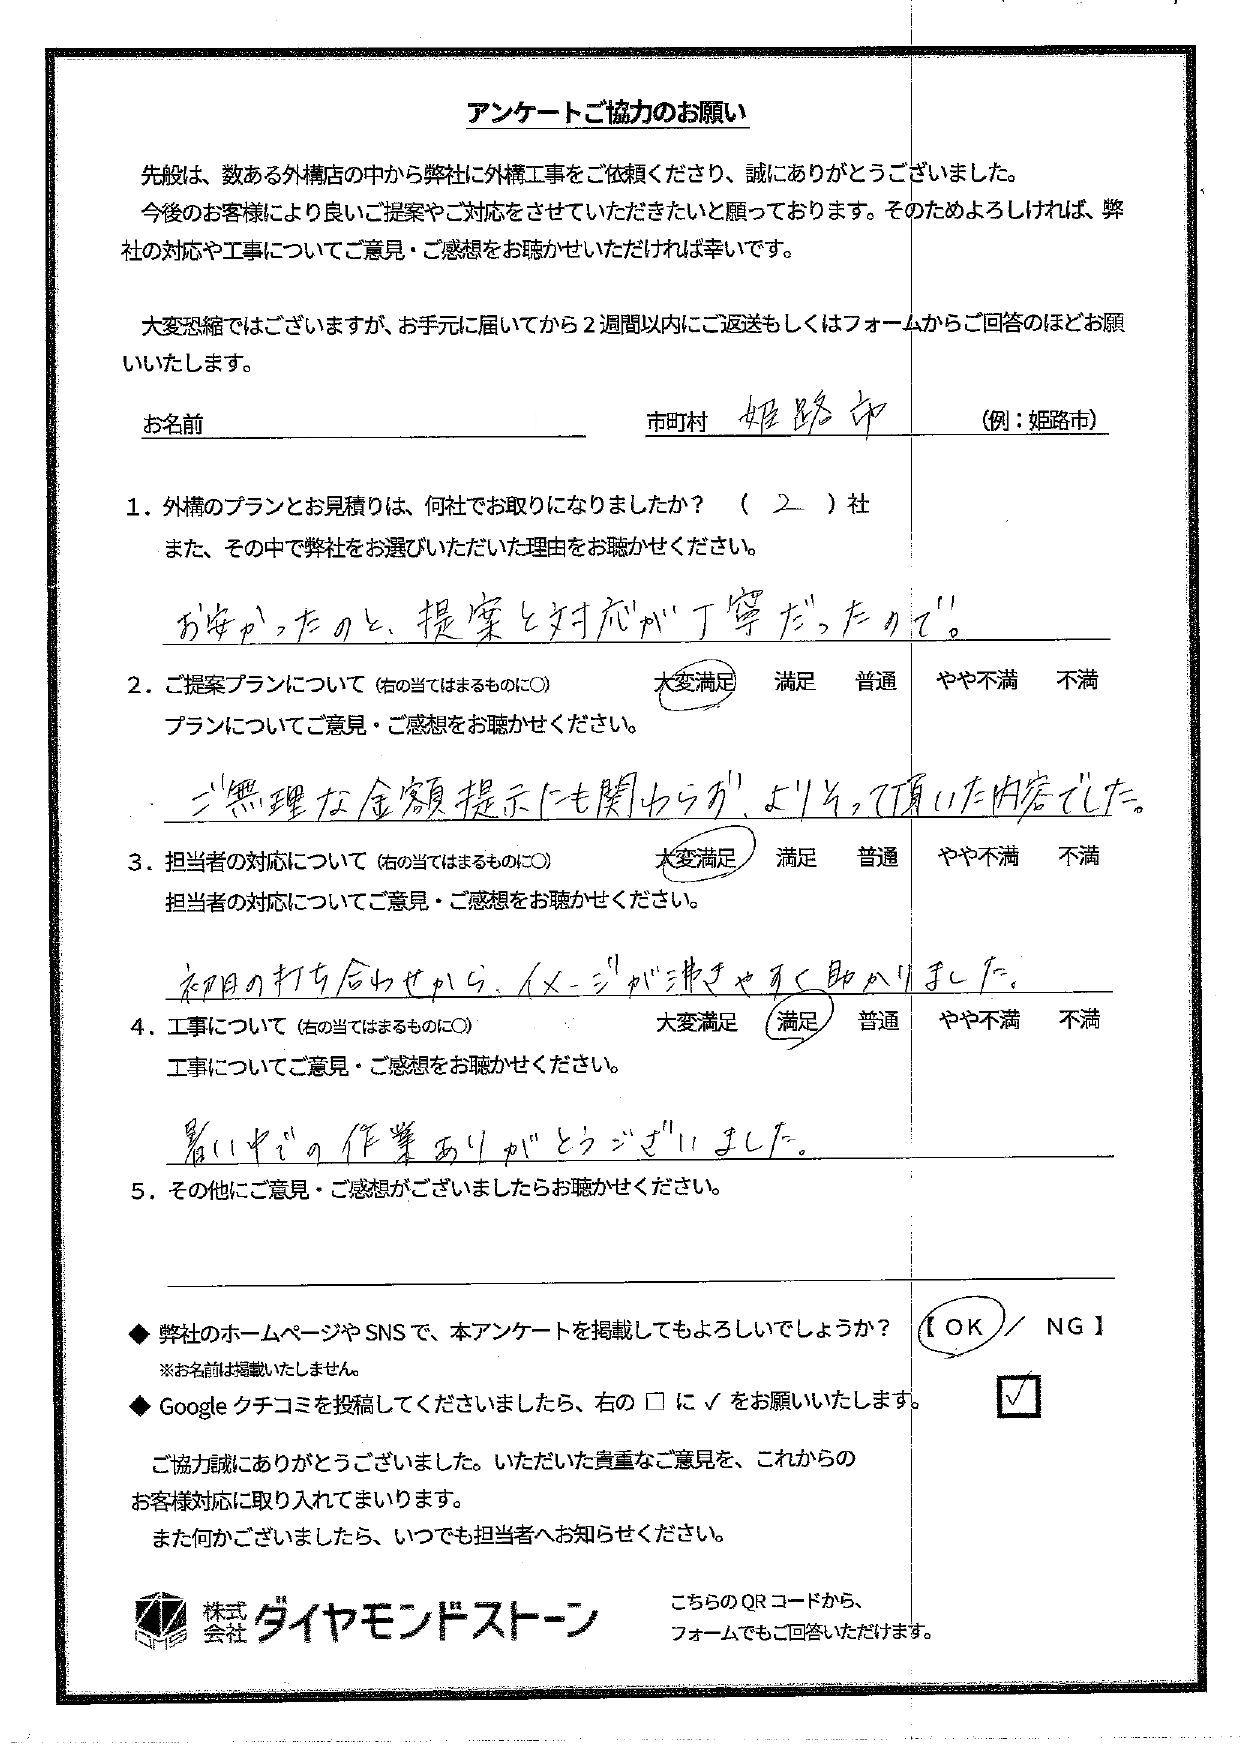 アンケートご協力のお願い
先般は、数ある外構店の中から弊社に外構工事をご依頼くださり、誠にありがとうございました。
今後のお客様により良いご提案やご対応をさせていただきたいと願っております。そのためよろしければ、弊
社の対応や工事についてご意見・ご感想をお聴かせいただければ幸いです。
大変恐縮ではございますが、お手元に届いてから2週間以内にご返送もしくはフォームからご回答のほどお願
いいたします。
お名前 市町村 姫路市 （例：姫路市）
1．外構のプランとお見積りは、何社でお取りになりましたか？ （ 2 ）社
また、その中で弊社をお選びいただいた理由をお聴かせください。
お安かったのと、提案と対応が丁寧だったので。
2．ご提案プランについて（右の当てはまるものに〇） 大変満足 満足 普通 やや不満 不満
プランについてご意見・ご感想をお聴かせください。
ご無理な金額提示にも関わらず、よりそって頂いた内容でした。
3．担当者の対応について（右の当てはまるものに〇） 大変満足 満足 普通 やや不満 不満
担当者の対応についてご意見・ご感想をお聴かせください。
初日の打ち合わせから、イメージが沸きやすく助かりました。
4．工事について（右の当てはまるものに〇） 大変満足 満足 普通 やや不満 不満
工事についてご意見・ご感想をお聴かせください。
暑い中での作業ありがとうございました。
5．その他にご意見・ご感想がございましたらお聴かせください。
◆ 弊社のホームページやSNSで、本アンケートを掲載してもよろしいでしょうか？ 【 OK ／ NG 】
※お名前は掲載いたしません。
◆ Googleクチコミを投稿してくださいましたら、右の □ に ✓ をお願いいたします。 ☑
ご協力誠にありがとうございました。いただいた貴重なご意見を、これからの
お客様対応に取り入れてまいります。
また何かございましたら、いつでも担当者へお知らせください。
株式会社 ダイヤモンドストーン
こちらのQRコードから、
フォームでもご回答いただけます。